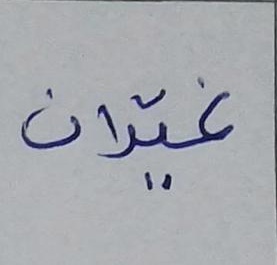 غيّران